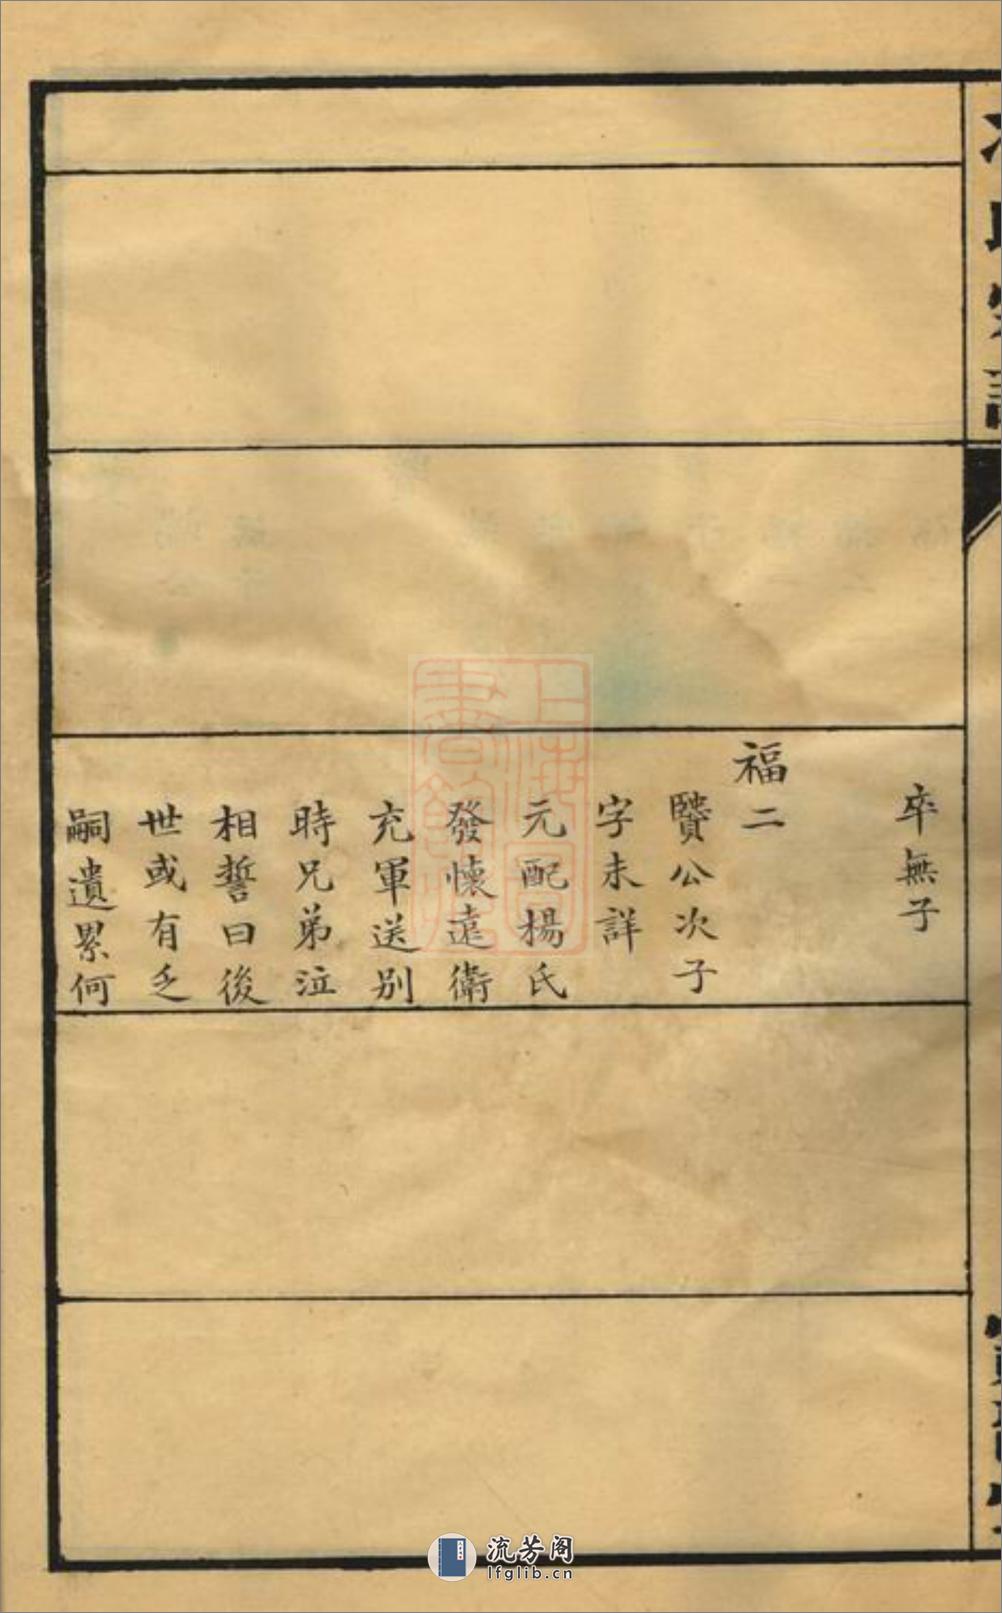 卒無子
福二
賢公次子
字未詳
元配楊氏
發懷遠衛
充軍送別
時兄弟泣
相誓曰後
世或有乏
嗣遺累何
上海圖書館藏
流芳阁
lfglib.cn